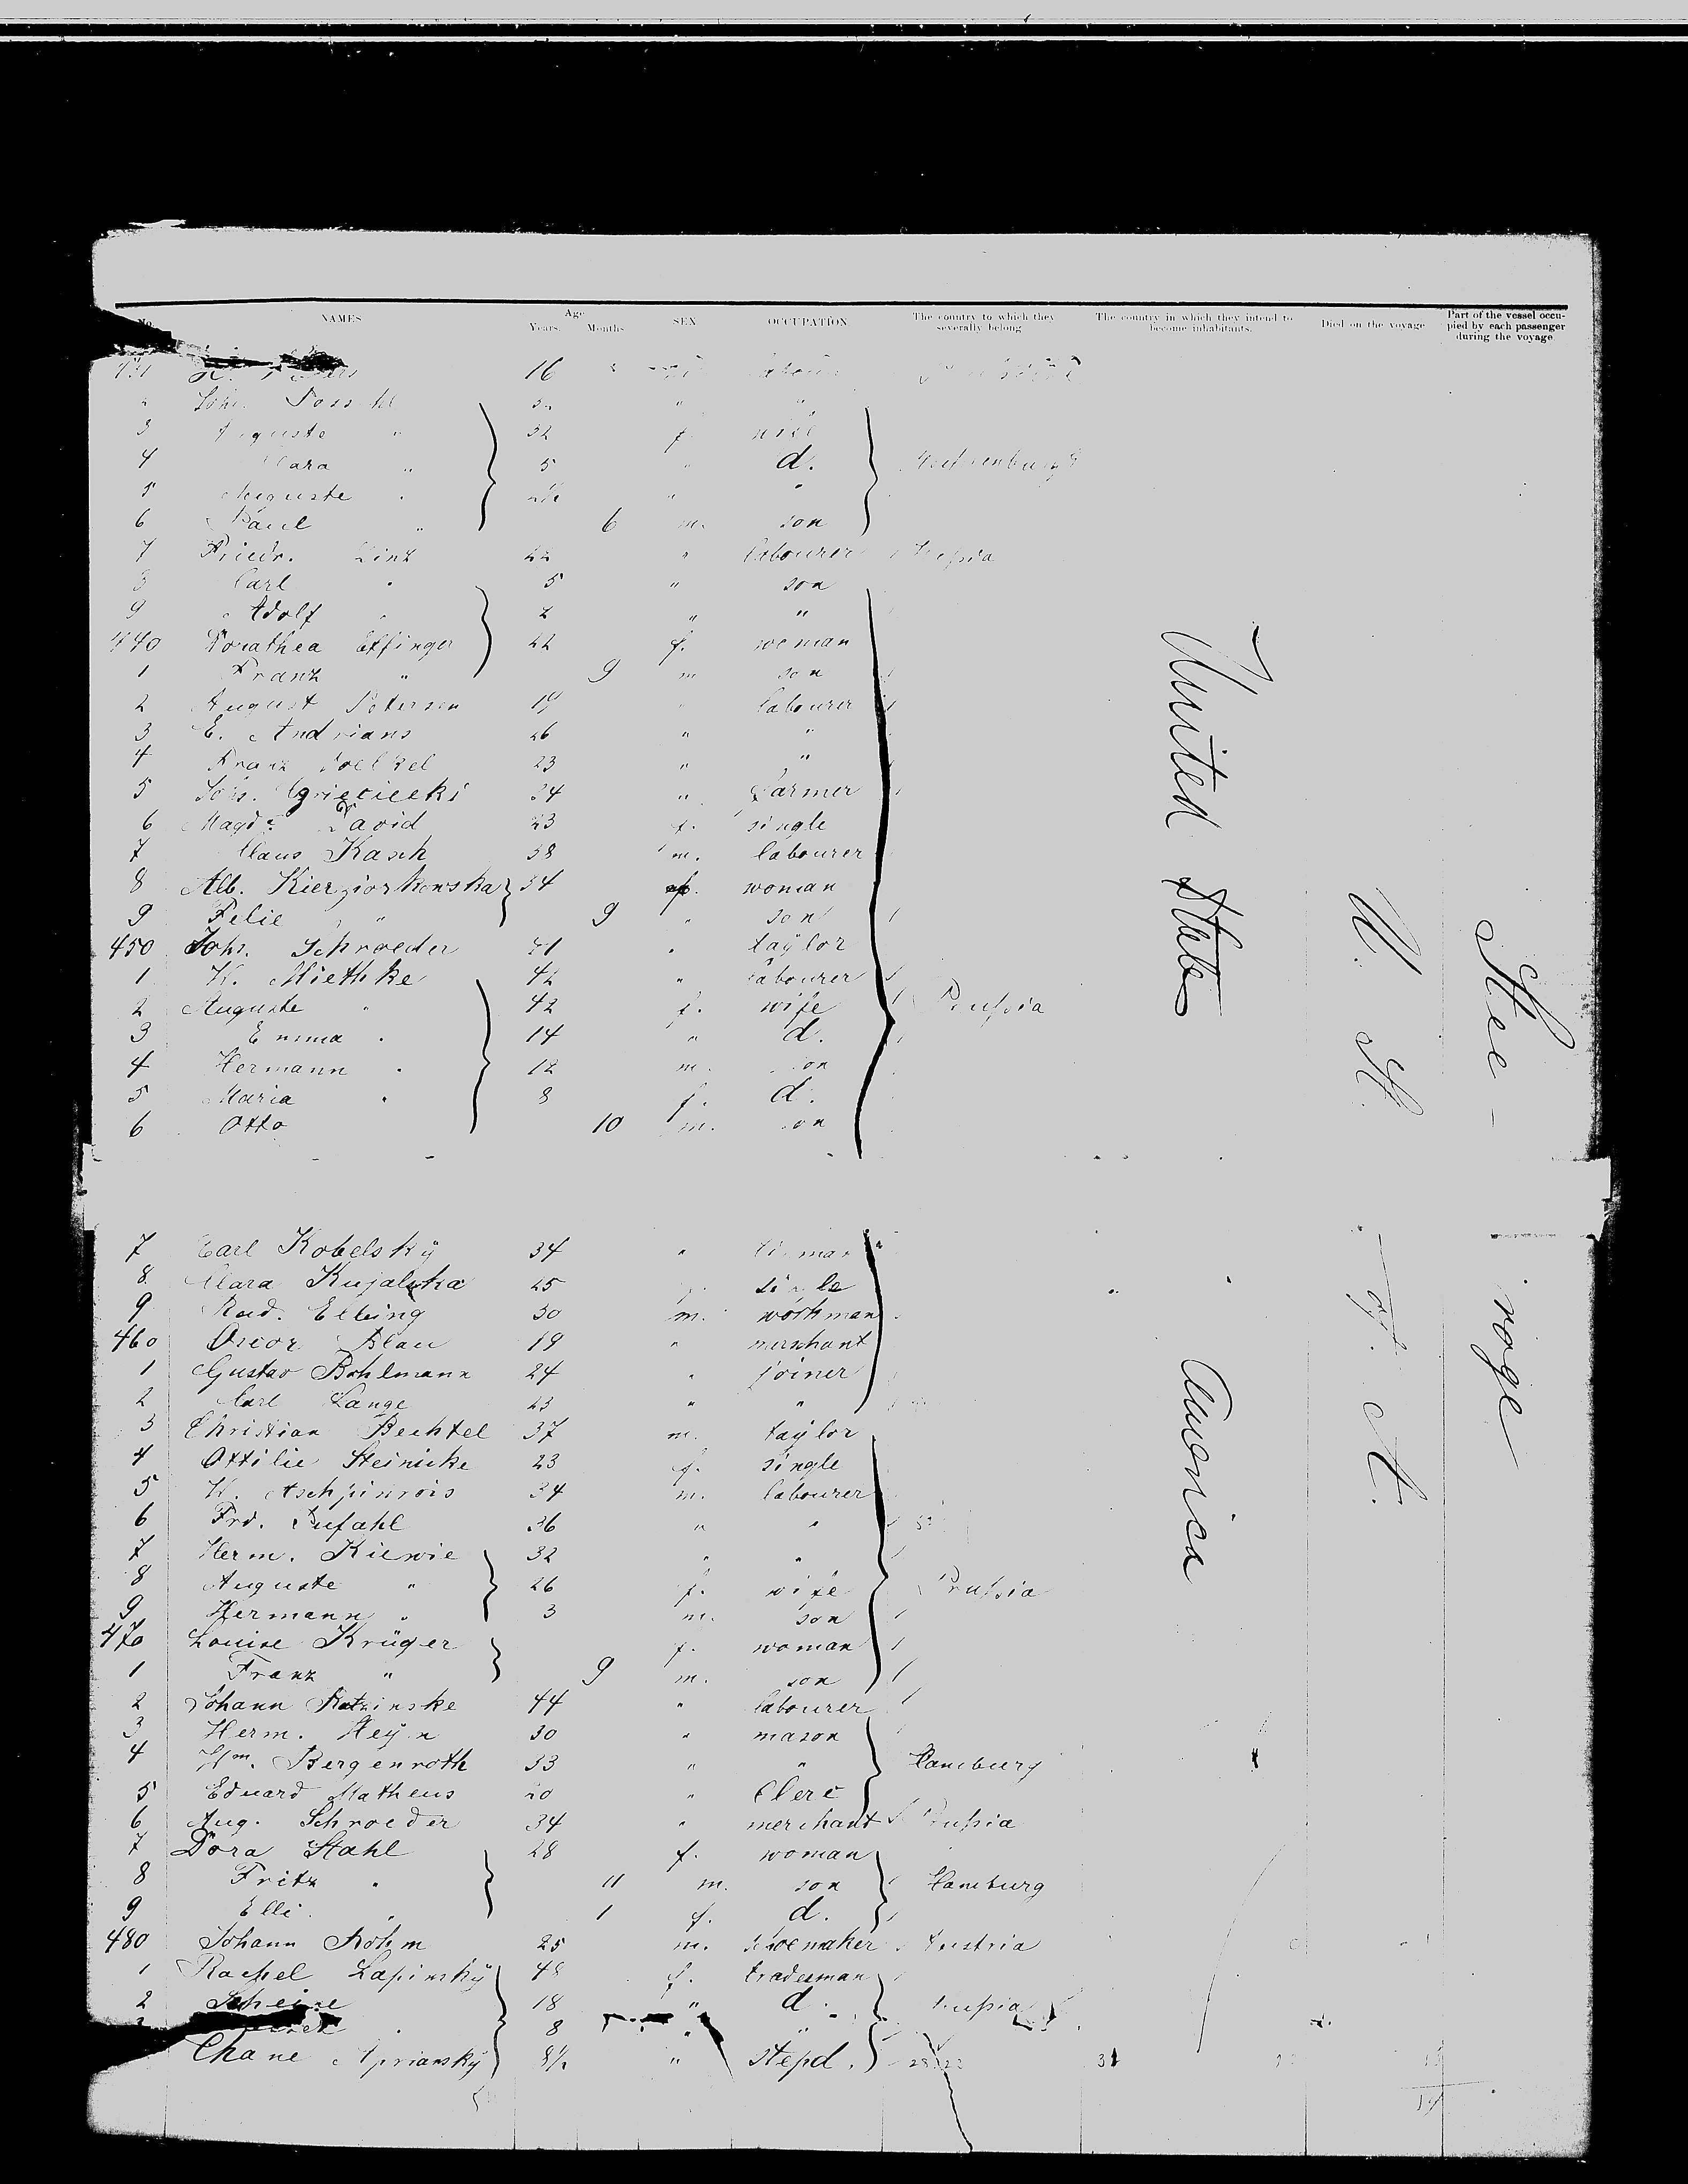 No. NAMES Age Years. Months SEX OCCUPATION The country to which they severally belong The country in which they intend to become inhabitants. Died on the voyage Part of the vessel occupied by each passenger during the voyage
16
" "
3 Auguste " 32 f. wife
4 Clara " 5 " d.
5 Auguste " "
6 Paul " 6 m. son
7 Friedr. Linz 22 " labourer
8 Carl " 5 " son
9 Adolf " 2 " "
440 Dorathea Effinger 22 f. woman
1 Franz " 9 m son
2 August Petersen 19 " labourer
3 E. Andrians 26 " "
4 Franz 23 " "
5 34 " farmer
6 David 23 f. single
7 Claus Kasch 38 m. labourer
8 Alb. Kierziorkowska 34 f. woman
9 Felie " 9 " son
450 Johs. Schroeder 41 " taylor
1 W. Miethke 42 " labourer
2 Auguste " 42 f. wife Prussia
3 Emma " 14 " d.
4 Hermann " 12 m. son
5 Maria " 8 f. d.
6 Otto 10 m. son
7 Carl Kobelsky 34 "
8 Clara 25 single
9 Rud. Elbing 30 m. workman
460 Oscar Blau 19 " merchant
1 Gustav Bohlmann 24 " joiner
2 Carl Lange 23 " "
3 Christian Bechtel 37 m. taylor
4 Ottilie Steinicke 23 f. single
5 W. 34 m. labourer
6 Frd. Pufahl 36 " "
7 Herm. Kiewie 32 " "
8 Auguste " 26 f. wife Prussia
9 Hermann " 3 m. son
470 Louise Krüger f. woman
1 Franz " 9 m. son
2 Johann 44 " labourer
3 Herm. Heyn 30 " mason
4 Wm. Bergenroth 33 " " Hamburg
5 Eduard Matheus 20 " Clerc
6 Aug. Schroeder 34 " merchant Prussia
7 Dora Stahl 28 f. woman
8 Fritz " 11 m. son Hamburg
9 Elli " 1 f. d.
480 Johann Böhm 25 m. shoemaker Austria
1 Rachel Lapinsky 48 f. tradesman
2 Scheine 18 " d.
8 " "
Chane Apriansky 8½ " stepd.
United States America
U. St. of A.
Steerage